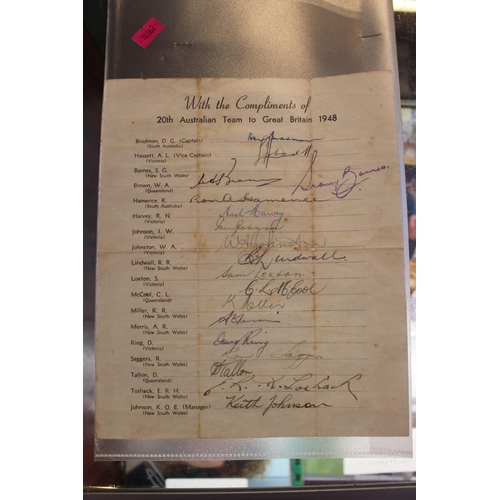 With the Compliments of
20th Australian Team to Great Britain 1948
Bradman, D. G. (Captain)
(South Australia)
Hassett, A. L. (Vice Captain)
(Victoria)
Barnes, S. G.
(New South Wales)
Sidney Barnes
Brown, W. A.
(Queensland)
Hamence, R.
(South Australia)
Ron A Hamence
Harvey, R. N.
(Victoria)
Neil Harvey
Johnson, I. W.
(Victoria)
Johnston, W. A.
(Victoria)
W A Johnston
Lindwall, R. R.
(New South Wales)
R Lindwall
Loxton, S.
(Victoria)
Sam Loxton
McCool, C. L.
(Queensland)
C. L. McCool
Miller, K. R.
(New South Wales)
K Miller
Morris, A. R.
(New South Wales)
Ring, D.
(Victoria)
Doug Ring
Saggers, R.
(New South Wales)
Saggers
Tallon, D.
(Queensland)
D Tallon
Toshack, E. R. H.
(New South Wales)
Toshack
Johnson, K. O. E. (Manager)
(New South Wales)
Keith Johnson